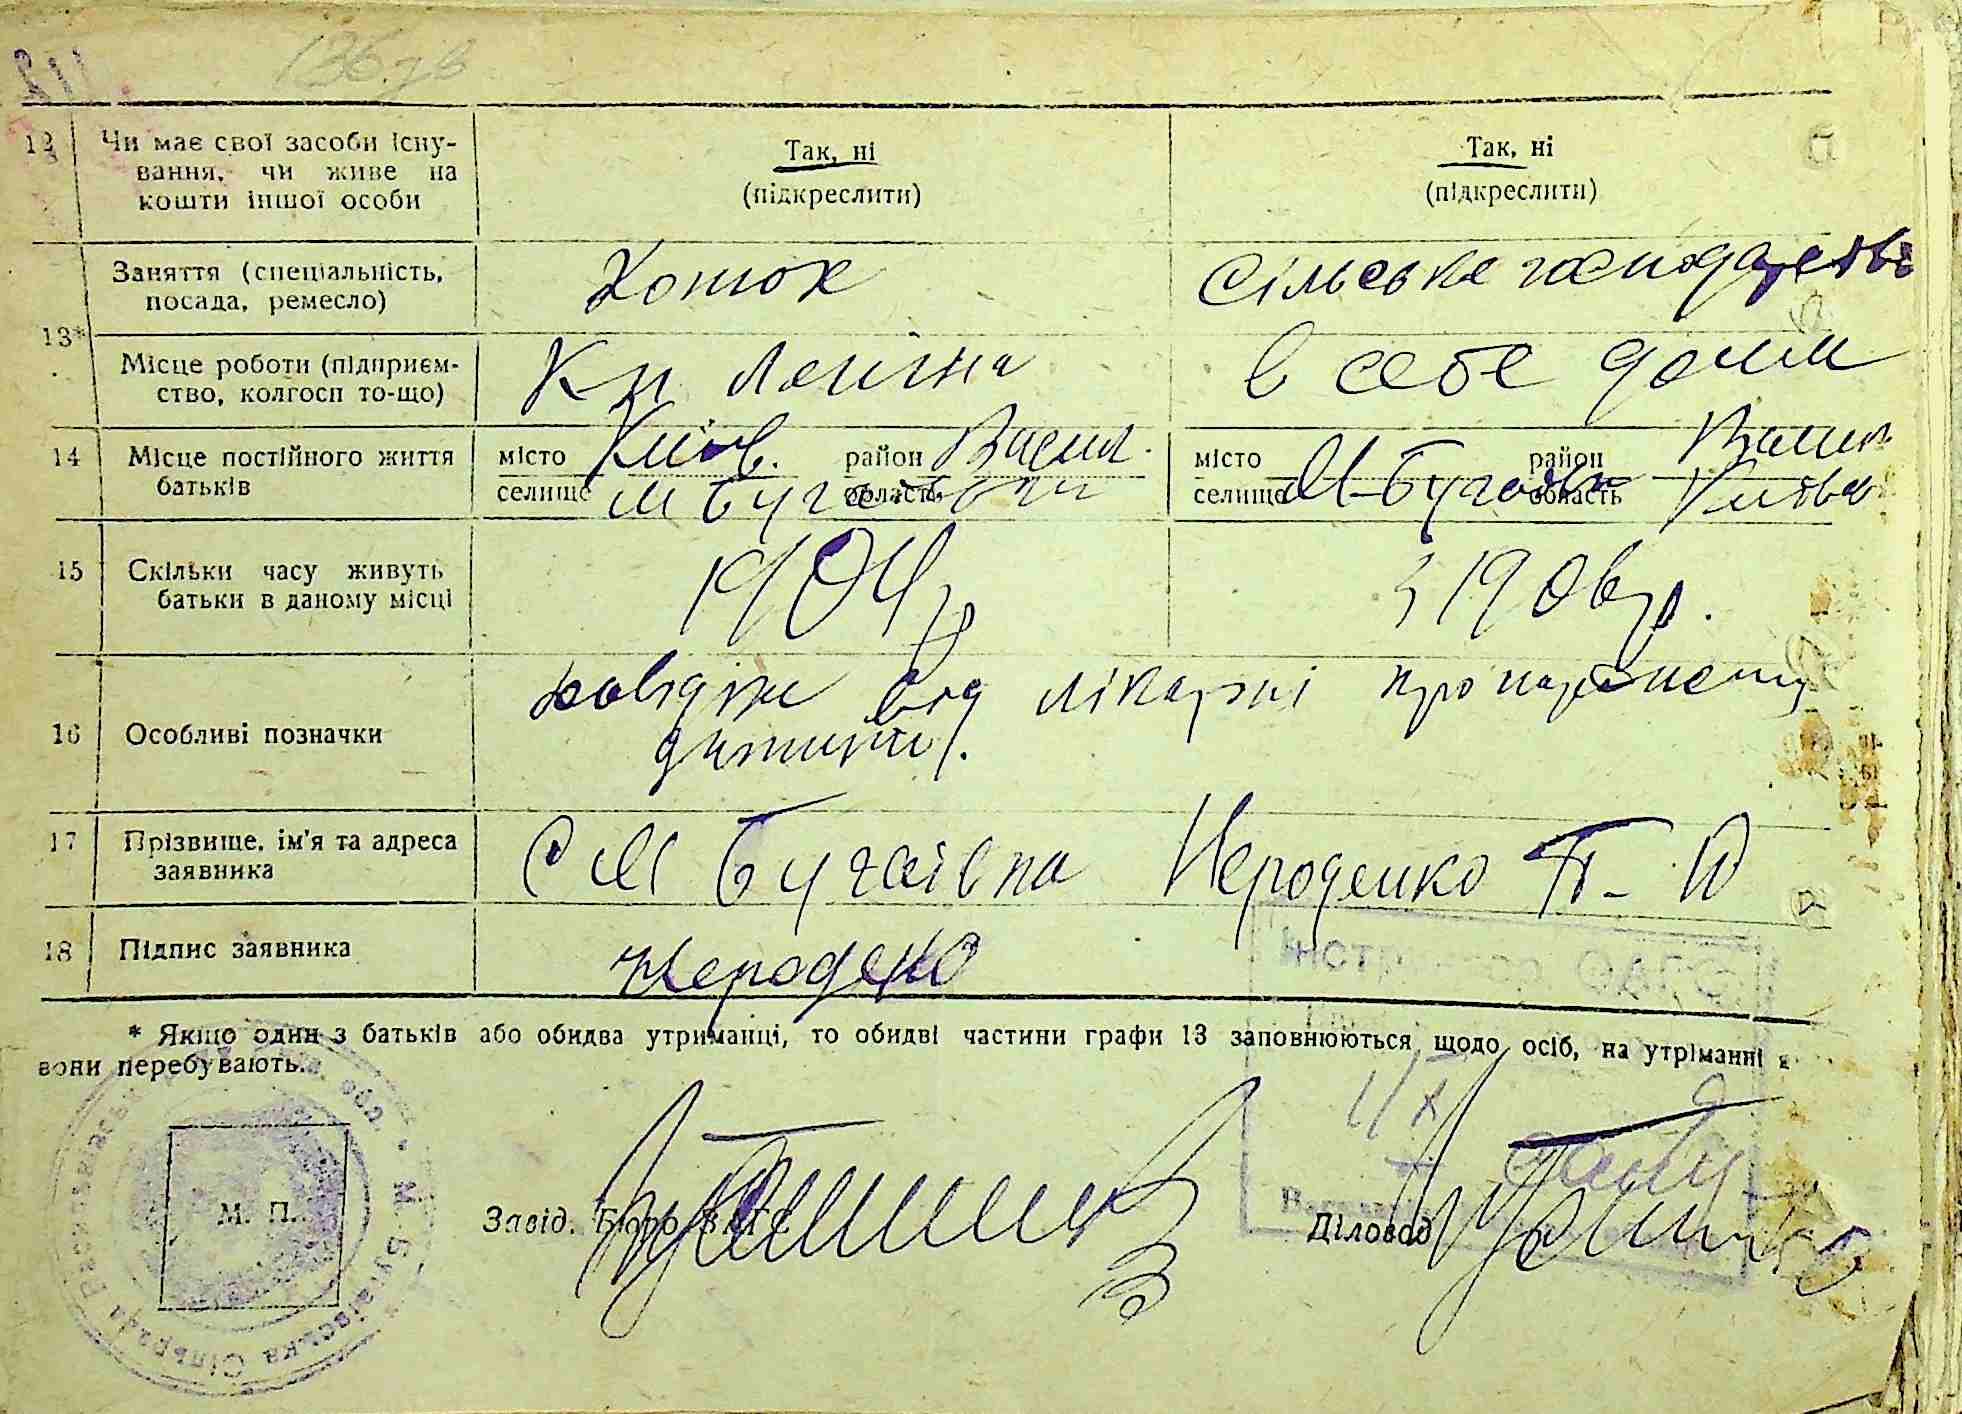 136 зв
12 Чи має свої засоби існу-
вання, чи живе на
кошти іншої особи
Так, ні
(підкреслити)
Так, ні
(підкреслити)
13* Заняття (спеціальність,
посада, ремесло)
Конюх
Сільське господарство
Місце роботи (підприєм-
ство, колгосп то-що)
Кп Леніна
в себе дома
14 Місце постійного життя
батьків
місто Київ. район Васил.
селище М Бугаївка область
місто район Васил
селище М-Бугаївка область Київська
15 Скільки часу живуть
батьки в даному місці
1904 р
з 1906 р.
16 Особливі позначки
довідки від лікарні про народження
дитини.
17 Прізвище, ім'я та адреса
заявника
С М Бугаївка Нероденко П- Ю
18 Підпис заявника
Нероденко
* Якщо один з батьків або обидва утриманці, то обидві частини графи 13 заповнюються щодо осіб, на утріманні
вони перебувають.
М. П.
Завід. Бюро ЗАГС
Діловод
Інструктор ОАГС
М. Бугаївська Сільрада
обл.